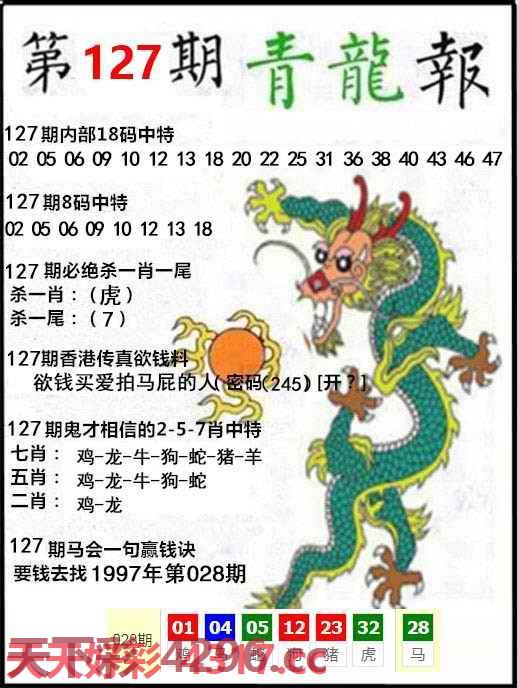 第127期青龍報
127期内部18码中特
02 05 06 09 10 12 13 18 20 22 25 31 36 38 40 43 46 47
127期8码中特
02 05 06 09 10 12 13 18
127期必绝杀一肖一尾
杀一肖：(虎)
杀一尾：(7)
127期香港传真欲钱料
欲钱买爱拍马屁的人(密码(245)[开？]
127期鬼才相信的2-5-7肖中特
七肖： 鸡-龙-牛-狗-蛇-猪-羊
五肖： 鸡-龙-牛-狗-蛇
二肖： 鸡-龙
127期马会一句赢钱诀
要钱去找1997年第028期
028期 01 04 05 12 23 32 28
鸡 马 蛇 狗 猪 虎 马